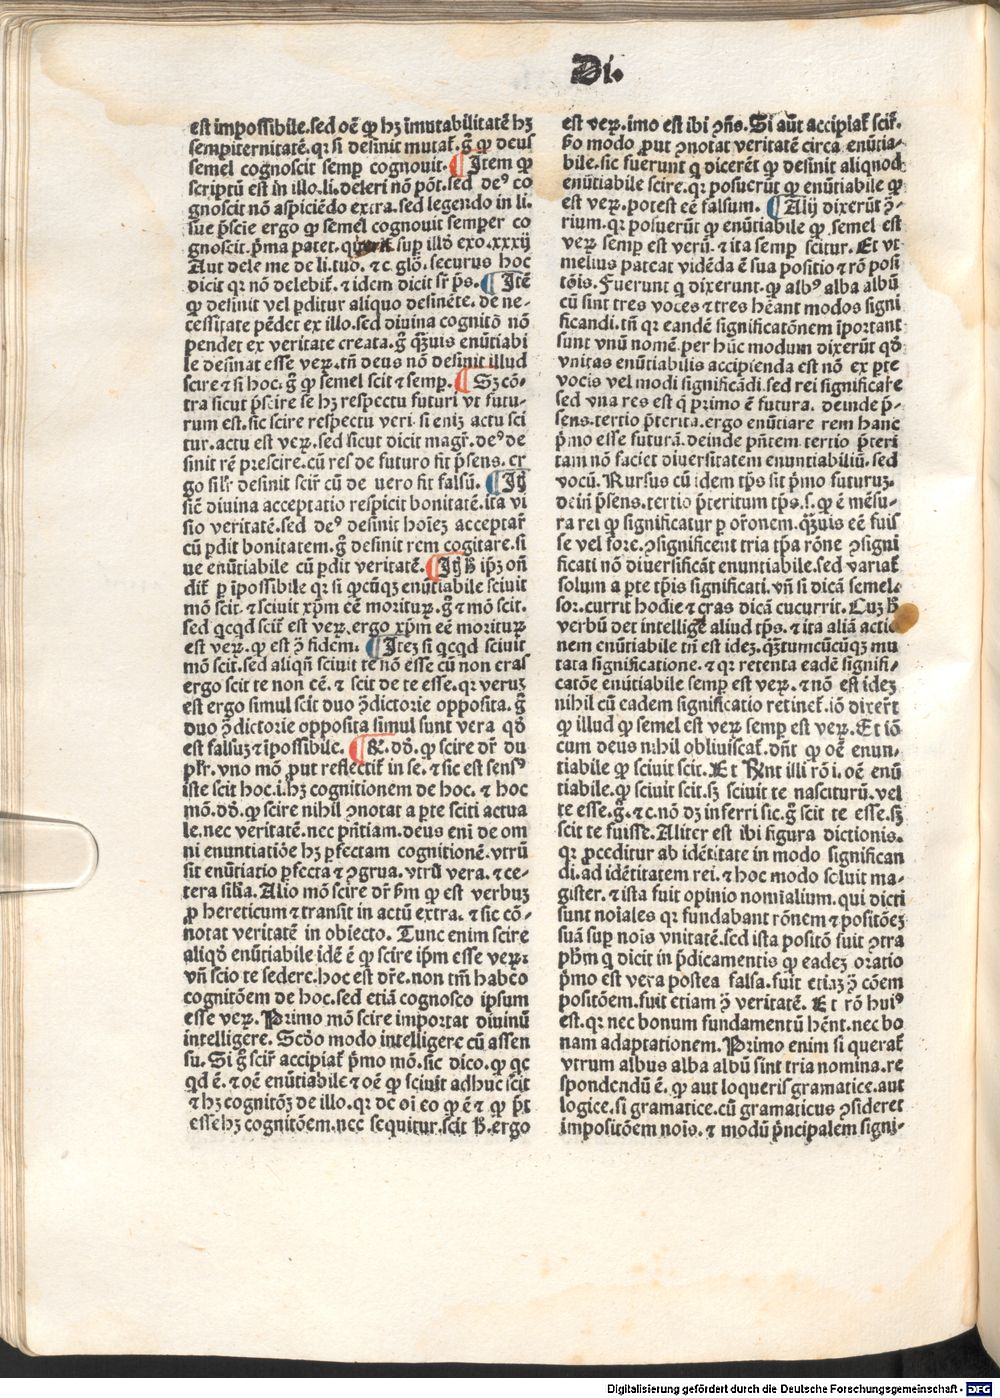 Di.
est impossibile.sed oē ꝙ hꝫ īmutabilitatē hꝫ
sempiternitatē.qꝛ si desinit mutat̄.g̊ ꝙ deus
semel cognoscit semꝑ cognouit. ¶ Item ꝙ
scriptū est in illo.li.deleri nō pōt.sed de⁹ co
gnoscit nō aspiciēdo extra.sed legendo in li.
sue p̄scie ergo ꝙ semel cognouit semper co
gnoscit.p̄ma patet. sup illō exo.xxxij
Aut dele me de li.tuo. ⁊c glō.securus hoc
dicit qꝛ nō delebit̄.⁊ idem dicit sr̄ ps. ¶ Itē
ꝙ desinit vel ꝑditur aliquo desinēte. de ne-
cessitate pēdet ex illo.sed diuina cognitō nō
pendet ex veritate creata.g̊ qꝫuis enūtiabi
le desinat esse veꝝ.tn̄ deus nō desinit illud
scire ⁊ si hoc.g̊ ꝙ semel scit ⁊ semꝑ. ¶ Sꝫ cō-
tra sicut p̄scire se hꝫ respectu futuri vt futu-
rum est.sic scire respectu veri.si eniꝫ actu sci
tur.actu est veꝝ.sed sicut dicit magr̄.de⁹ de
sinit rē prescire.cū res de futuro fit p̄sens.er
go silr̄ desinit scir̄ cū de uero fit falsū. ¶ Itꝫ
sic̄ diuina acceptatio respicit bonitatē.ita vi
sio veritatē.sed de⁹ desinit hoīeꝫ acceptar̄
cū ꝑdit bonitatem.g̊ desinit rem cogitare.si
ue enūtiabile cū ꝑdit veritatē. ¶ Itꝫ ꝭ ip̄ꝫ on̄
dit̄ ꝑ īpossibile qꝛ si ꝙcūqꝫ enūtiabile sciuit
mō scit.⁊ sciuit xp̄m eē morituꝝ.g̊ ⁊ mō scit.
sed qcqd scit est veꝝ.ergo xp̄m eē morituꝝ
est veꝝ.ꝙ est ꝯ̄ fidem. ¶ Iteꝫ si qcqd sciuit
mō scit.sed aliqn̄ sciuit te nō esse cū non eras
ergo scit te non eē.⁊ scit de te esse.qꝛ veruꝫ
est ergo simul scit duo ꝯ̄dictorie opposita.g̊
duo ꝯ̄dictorie opposita simul sunt vera qō
est falsuꝫ ⁊ īpossibile. ¶ R̄. dō.ꝙ scire dr̄ du
plr̄.vno mō ꝓut reflectit̄ in se.⁊ sic est sens⁹
iste scit hoc.i.hꝫ cognitionem de hoc. ⁊ hoc
mō.dō.ꝙ scire nihil ꝯnotat a ꝑte sciti actua
le.nec veritatē.nec pn̄tiam.deus eni de om
ni enuntiatiōe hꝫ ꝑfectam cognitionē.vtrū
sit enūtiatio ꝑfecta ⁊ ꝯgrua.vtrū vera.⁊ ce-
tera silia.Alio mō scire dr̄ ꝭm ꝙ est verbuꝫ
ꝓ hereticum ⁊ transit in actū extra.⁊ sic cō-
notat veritatē in obiecto. Tunc enim scire
aliqō enūtiabile idē ē ꝙ scire ip̄m esse veꝝ:
vn̄ scio te sedere.hoc est dr̄e.non tm̄ habeo
cognitōem de hoc.sed etiā cognosco ipsum
esse veꝝ.Primo mō scire importat diuinū
intelligere.Scd̄o modo intelligere cū assen
su.Si g̊ scir̄ accipiat̄ p̄mo mō.sic dico.ꝙ qc
qd ē.⁊ oē enūtiabile ⁊ oē ꝙ sciuit adhuc scit
⁊ hꝫ cognitōꝫ de illo.qꝛ de oī eo ꝙ ē ⁊ ꝙ p̄t
esse hꝫ cognitōem.nec sequitur.scit ꝭ.ergo
est veꝝ.imo est ibi ꝯn̄s.Si aūt accipiat̄ scir̄.
ꝭo modo ꝓut ꝯnotat veritatē circa enūtia-
bile.sic fuerunt q dicerēt ꝙ desinit aliqnod
enūtiabile scire.qꝛ posuerūt ꝙ enūtiabile ꝙ
est veꝝ.potest eē falsum. ¶ Alij dixerūt ꝯ̄-
rium.qꝛ posuerūt ꝙ enūtiabile ꝙ semel est
veꝝ semꝑ est verū.⁊ ita semꝑ scitur. Et vt
melius pateat vidēda ē sua positio ⁊ rō posi
tōis.Fuerunt q dixerunt.ꝙ alb⁹ alba albū
cū sint tres voces ⁊ tres hēant modos signi
ficandi.tn̄ qꝛ eandē significatōnem īportant
sunt vnū nomē.per hūc modum dixerūt qō
vnitas enūtiabilis accipienda est nō ex ꝑte
vocis vel modi significādi.sed rei significate
sed vna res est q̄ primo ē futura. deinde p̄-
sens.tertio p̄terita.ergo enūtiare rem hanc
p̄mo esse futurā.deinde pn̄tem tertio p̄teri
tam nō faciet diuersitatem enuntiabiliū.sed
vocū. Rursus cū idem tp̄s sit p̄mo futuruꝫ.
dein̄ p̄sens.tertio p̄teritum tp̄s.s.ꝙ ē mēsu-
ra rei ꝙ significatur ꝑ or̄onem.qꝫuis eē fuis
se vel fore.ꝯsignificent tria tp̄a rōne ꝯsigni
ficati nō diuersificāt enuntiabile.sed variat̄
solum a ꝑte tp̄is significati. vn̄ si dicā semel-
sor.currit hodie ⁊ cras dicā cucurrit. Cuꝫ ꝭ
verbū det intellige aliud tp̄s.⁊ ita aliā actio
nem enūtiabile tn̄ est ideꝫ.qꝫtumcūcūqꝫ mu
tata significatione.⁊ qꝛ retenta eadē signifi-
catōe enūtiabile semꝑ est veꝝ.⁊ nō est ideꝫ
nihil cū eadem significatio retinet̄.iō dixer̄t
ꝙ illud ꝙ semel est veꝝ semꝑ est veꝝ.Et iō
cum deus nihil obliuiscat̄.dn̄t ꝙ oē enun-
tiabile ꝙ sciuit scit. Et Rn̄t illi rō i.oē enū
tiabile.ꝙ sciuit scit.sꝫ sciuit te nasciturū.vel
te esse.g̊.⁊c.nō dꝫ inferri sic.g̊ scit te esse.sꝫ
scit te fuisse.Aliter est ibi figura dictionis.
qꝛ ꝓceditur ab idētitate in modo significan
di.ad idētitatem rei.⁊ hoc modo soluit ma-
gister.⁊ ista fuit opinio nomialium.qui dicti
sunt noiales qꝛ fundabant rōnem ⁊ positōeꝫ
suā suꝑ nois vnitatē.sed ista positō fuit ꝯtra
ph̄m q dicit in p̄dicamentis ꝙ eadeꝫ oratio
p̄mo est vera postea falsa.fuit etiaꝫ ꝯ̄ cōem
positōem.fuit etiam ꝯ̄ veritatē. Et rō hui⁹
est.qꝛ nec bonum fundamentū hēnt.nec bo
nam adaptationem.Primo enim si querat̄
vtrum albus alba albū sint tria nomina.re
spondendū ē.ꝙ aut loqueris gramatice.aut
logice.si gramatice.cū gramaticus ꝯsideret
impositōem nois.⁊ modū p̄ncipalem signi-
Digitalisierung gefördert durch die Deutsche Forschungsgemeinschaft - DFG